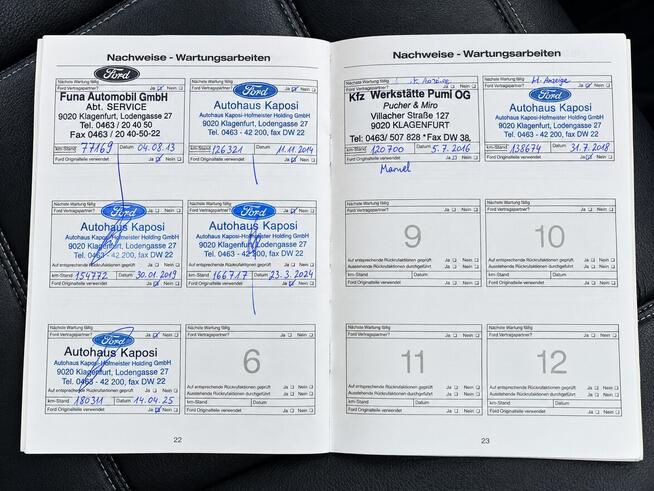 Nachweise - Wartungsarbeiten
Nächste Wartung fällig
Ford Vertragspartner? Ja Nein
Ford
Funa Automobil GmbH
Abt. SERVICE
9020 Klagenfurt, Lodengasse 27
Tel. 0463 / 20 40 50
Fax 0463 / 20 40-50-22
km-Stand 77169 Datum 04.08.13
Ford Originalteile verwendet Ja Nein
Nächste Wartung fällig
Ford Vertragspartner? Ja Nein
Ford
Autohaus Kaposi
Autohaus Kaposi-Hofmeister Holding GmbH
9020 Klagenfurt, Lodengasse 27
Tel. 0463 - 42 200, fax DW 22
km-Stand 126321 Datum 11.11.2014
Ford Originalteile verwendet Ja Nein
Ford
Autohaus Kaposi
Autohaus Kaposi-Hofmeister Holding GmbH
9020 Klagenfurt, Lodengasse 27
Tel. 0463 - 42 200, fax DW 22
Auf entsprechende Rückrufaktionen geprüft Ja Nein
km-Stand 154772 Datum 30.01.2019
Ford Originalteile verwendet Ja Nein
Nächste Wartung fällig
Ford Vertragspartner? Ja Nein
Ford
Autohaus Kaposi
Autohaus Kaposi-Hofmeister Holding GmbH
9020 Klagenfurt, Lodengasse 27
Tel. 0463 - 42 200, fax DW 22
Auf entsprechende Rückrufaktionen geprüft Ja Nein
km-Stand 166717 Datum 23.3.2024
Ford Originalteile verwendet Ja Nein
Nächste Wartung fällig
Ford Vertragspartner? Ja Nein
Ford
Autohaus Kaposi
Autohaus Kaposi-Hofmeister Holding GmbH
9020 Klagenfurt, Lodengasse 27
Tel. 0463 - 42 200, fax DW 22
km-Stand 180311 Datum 14.04.25
Ford Originalteile verwendet Ja Nein
Nächste Wartung fällig
Ford Vertragspartner? Ja Nein
6
Auf entsprechende Rückrufaktionen geprüft Ja Nein
Ausstehende Rückrufaktionen durchgeführt Ja Nein
km-Stand Datum
Ford Originalteile verwendet Ja Nein
22
Nachweise - Wartungsarbeiten
Nächste Wartung fällig
Ford Vertragspartner? Ja Nein
Kfz Werkstätte Pumi OG
Pucher & Miro
Villacher Straße 127
9020 KLAGENFURT
Tel: 0463/ 507 828 * Fax DW 38,
km-Stand 120700 Datum 5.7.2016
Ford Originalteile verwendet Ja Nein
Nächste Wartung fällig lt. Anzeige
Ford Vertragspartner? Ja Nein
Ford
Autohaus Kaposi
Autohaus Kaposi-Hofmeister Holding GmbH
9020 Klagenfurt, Lodengasse 27
Tel. 0463 - 42 200, fax DW 22
km-Stand 138674 Datum 31.7.2018
Ford Originalteile verwendet Ja Nein
Nächste Wartung fällig
Ford Vertragspartner? Ja Nein
9
Auf entsprechende Rückrufaktionen geprüft Ja Nein
Ausstehende Rückrufaktionen durchgeführt Ja Nein
km-Stand Datum
Ford Originalteile verwendet Ja Nein
Nächste Wartung fällig
Ford Vertragspartner? Ja Nein
10
Auf entsprechende Rückrufaktionen geprüft Ja Nein
Ausstehende Rückrufaktionen durchgeführt Ja Nein
km-Stand Datum
Ford Originalteile verwendet Ja Nein
Nächste Wartung fällig
Ford Vertragspartner? Ja Nein
11
Auf entsprechende Rückrufaktionen geprüft Ja Nein
Ausstehende Rückrufaktionen durchgeführt Ja Nein
km-Stand Datum
Ford Originalteile verwendet Ja Nein
Nächste Wartung fällig
Ford Vertragspartner? Ja Nein
12
Auf entsprechende Rückrufaktionen geprüft Ja Nein
Ausstehende Rückrufaktionen durchgeführt Ja Nein
km-Stand Datum
Ford Originalteile verwendet Ja Nein
23